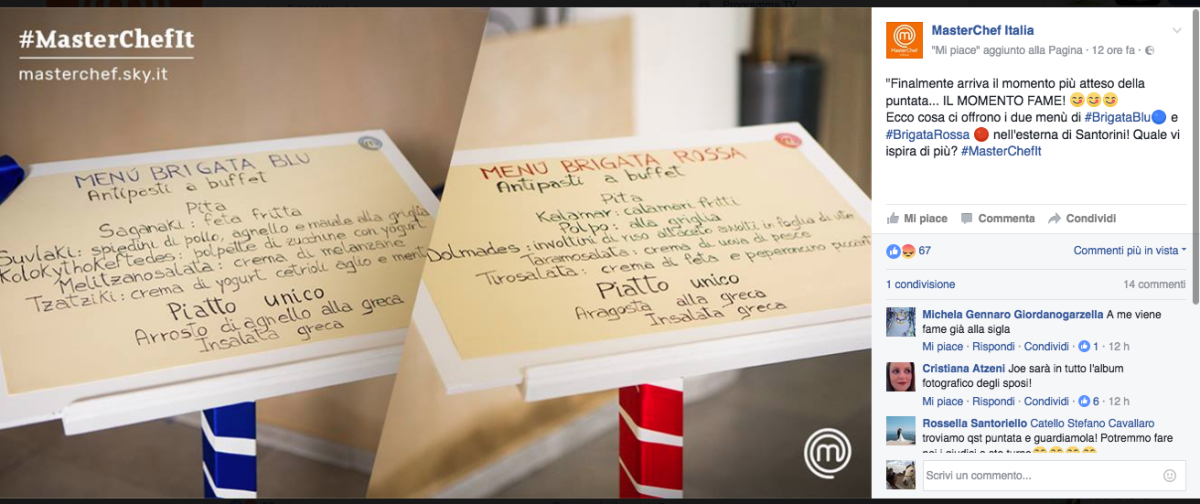 #MasterChefIt
masterchef.sky.it
MENÙ BRIGATA BLU
Antipasti a buffet
Pita
Saganaki: feta fritta
Suvlaki: spiedini di pollo, agnello e maiale alla griglia
Kolokythokeftedes: polpette di zucchine con yogurt
Melitzanosalata: crema di melanzane
Tzatziki: crema di yogurt cetrioli aglio e menta
Piatto unico
Arrosto di agnello alla greca
Insalata greca
MENÙ BRIGATA ROSSA
Antipasti a buffet
Pita
Kalamar: calamari fritti
Polpo: alla griglia
Dolmades: involtini di riso all'aceto avvolti in foglia di vite
Taramosalata: crema di uova di pesce
Tirosalata: crema di feta e peperoncino piccante
Piatto unico
Aragosta alla greca
Insalata greca
MasterChef Italia
"Mi piace" aggiunto alla Pagina · 12 ore fa ·
"Finalmente arriva il momento più atteso della
puntata... IL MOMENTO FAME! 😋😋😋
Ecco cosa ci offrono i due menù di #BrigataBlu🔵 e
#BrigataRossa 🔴 nell'esterna di Santorini! Quale vi
ispira di più? #MasterChefIt
Mi piace Commenta Condividi
67 Commenti più in vista
1 condivisione 14 commenti
Michela Gennaro Giordanogarzella A me viene
fame già alla sigla
Mi piace · Rispondi · Condividi · 1 · 12 h
Cristiana Atzeni Joe sarà in tutto l'album
fotografico degli sposi!
Mi piace · Rispondi · Condividi · 6 · 12 h
Rossella Santoriello Catello Stefano Cavallaro
troviamo qst puntata e guardiamola! Potremmo fare
noi i giudici a sto turno
Scrivi un commento...